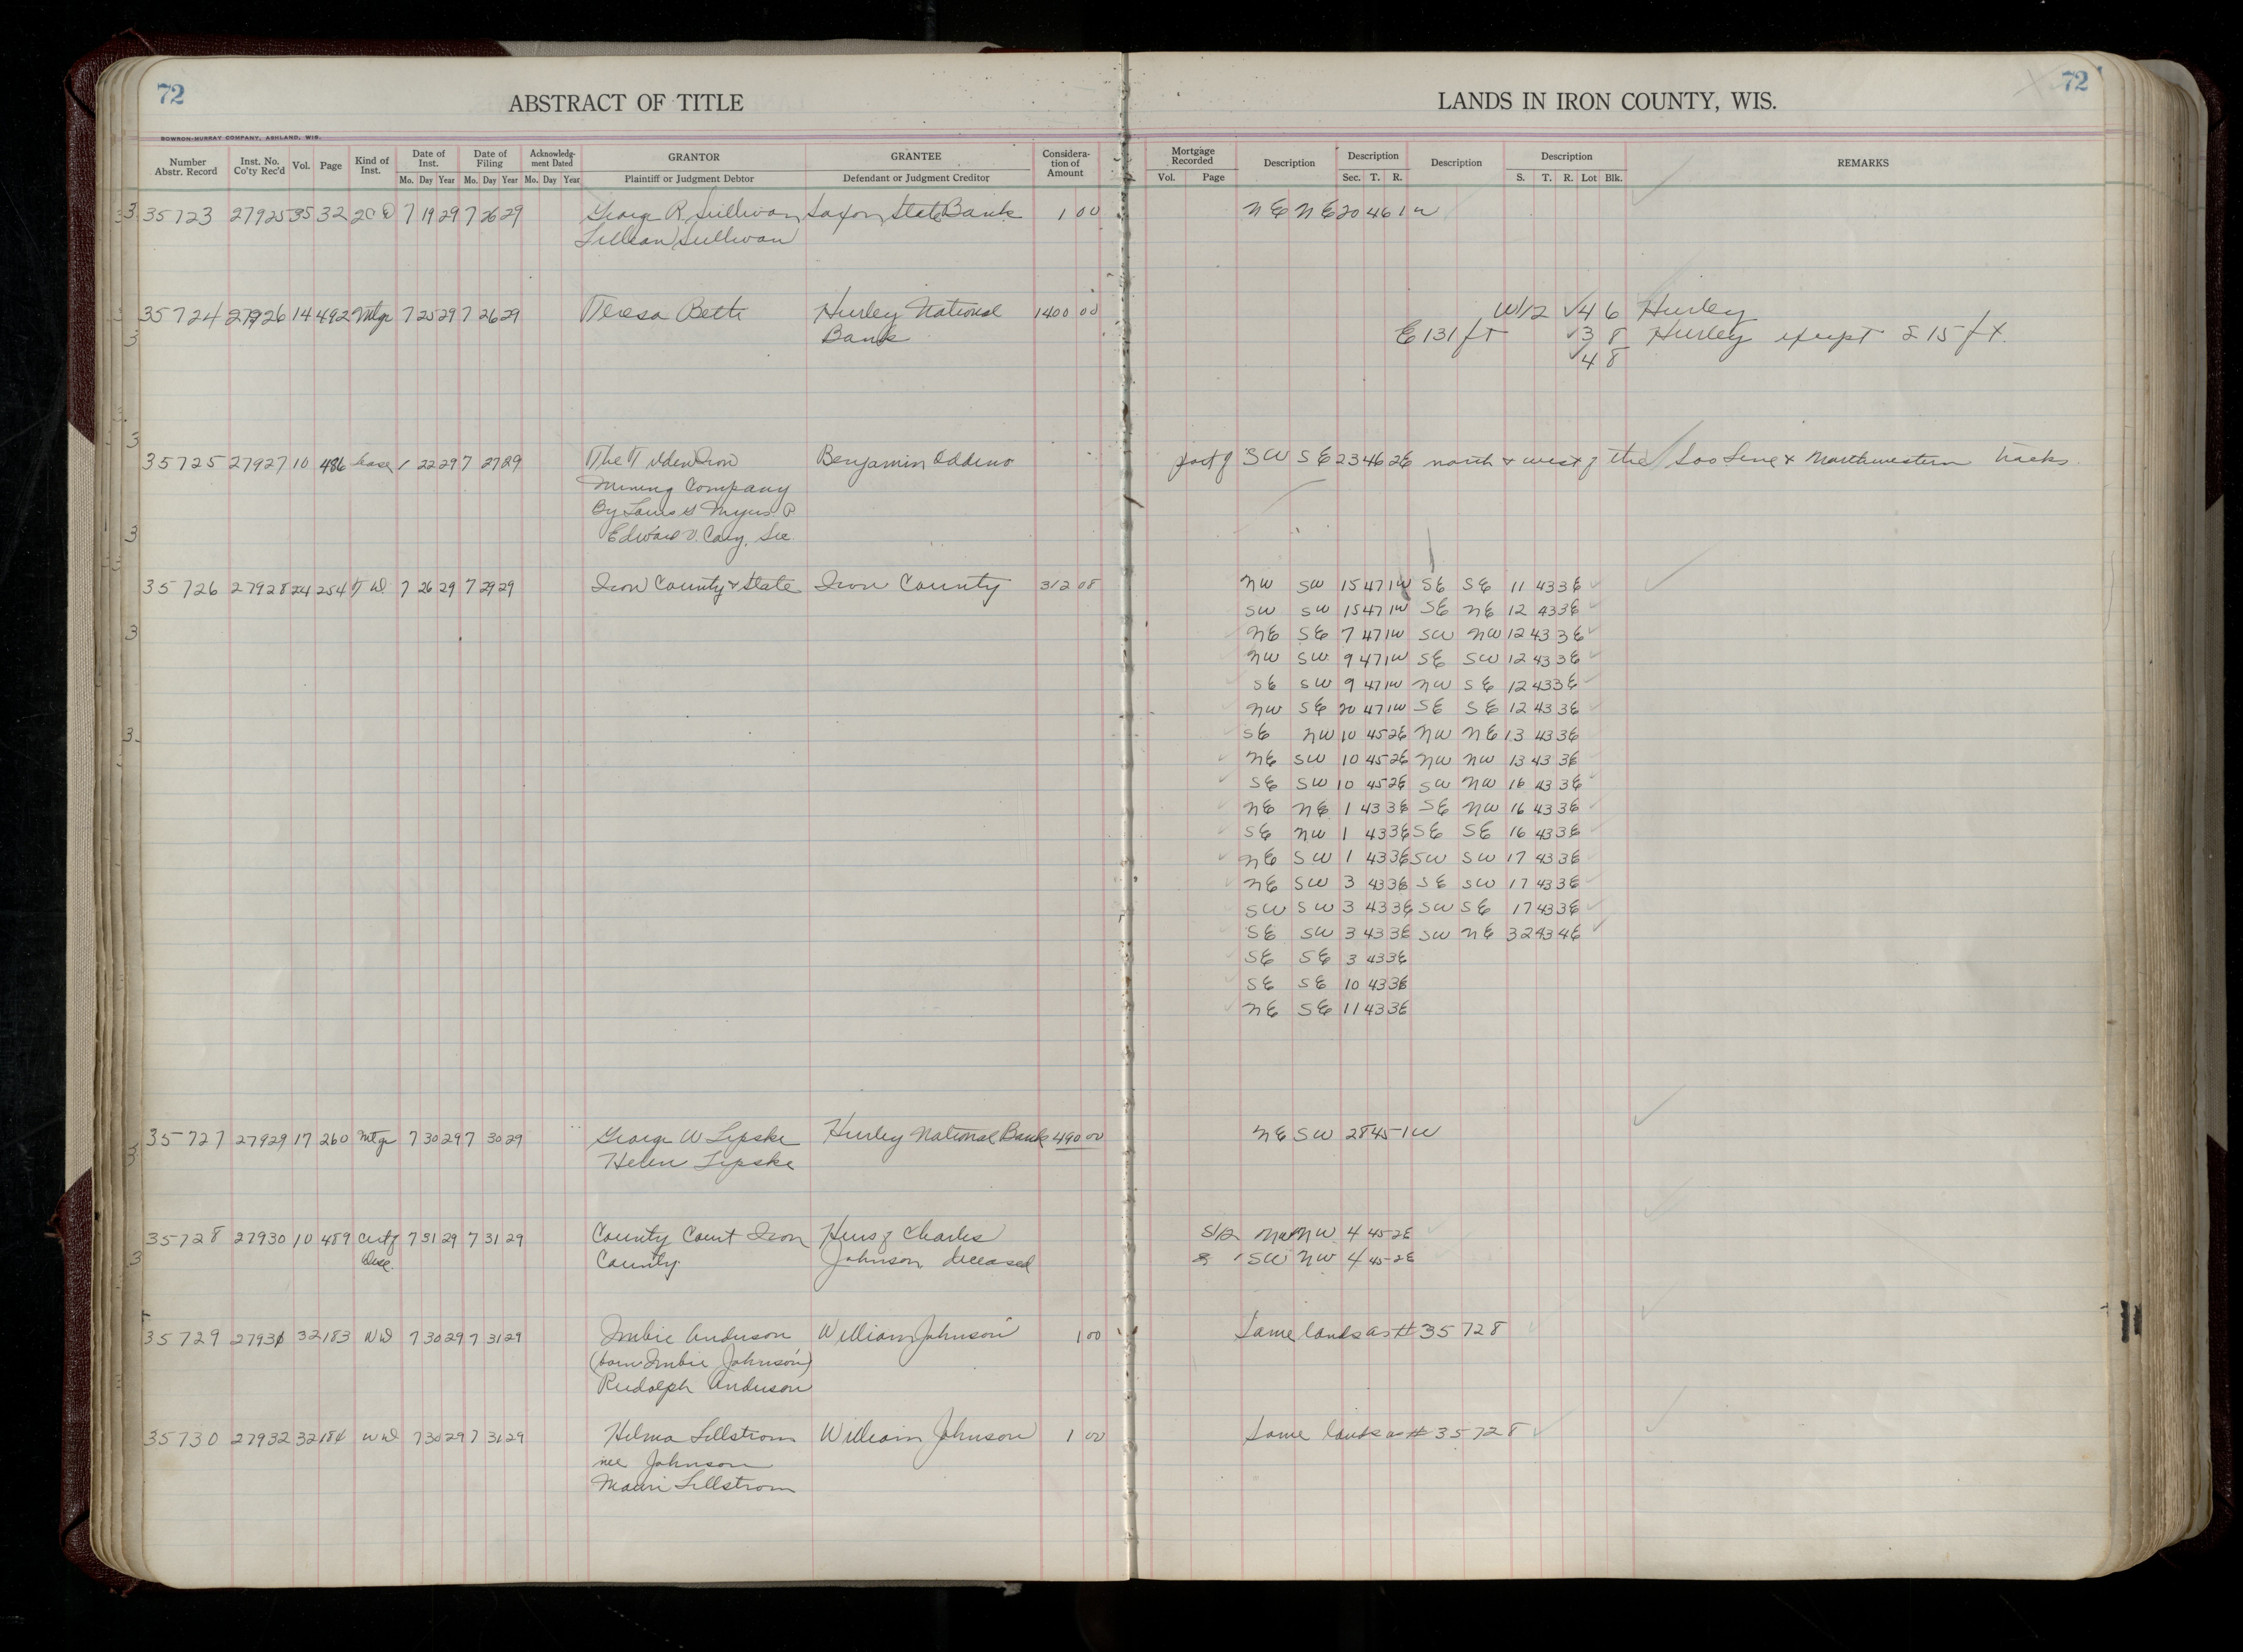 72
ABSTRACT OF TITLE
LANDS IN IRON COUNTY, WIS.
72
BOWRON-MURRAY COMPANY, ASHLAND, WIS.
Number Abstr. Record | Inst. No. Co'ty Rec'd | Vol. | Page | Kind of Inst. | Date of Inst. Mo. Day Year | Date of Filing Mo. Day Year | Acknowledgment Dated Mo. Day Year | GRANTOR Plaintiff or Judgment Debtor | GRANTEE Defendant or Judgment Creditor | Consideration of Amount | Mortgage Recorded Vol. Page | Description | Description Sec. T. R. | Description | Description S. T. R. Lot Blk. | REMARKS
35723 27925 35 32 2C D 7 19 29 7 26 29 George R. Sullivan Saxon State Bank 1 00 NE NE 20 46 1W
Lillian Sullivan
35724 27926 14 492 Mtge 7 25 29 7 26 29 Teresa Betti Hurley National 1400 00 W1/2 4 6 Hurley
Bank E 131 ft 3 8 Hurley except S 15 ft.
4 8
35725 27927 10 486 Lease 1 22 29 7 27 29 The Tilden Iron Benjamin Oddino part of SW SE 23 46 2E north & west of the Soo Line & Northwestern tracks
Mining Company
By Louis G Myers P
Edward V. Cary, Sec
35726 27928 24 254 T D 7 26 29 7 29 29 Iron County & State Iron County 312 08 NW SW 15 47 1W SE SE 11 43 3E
SW SW 15 47 1W SE NE 12 43 3E
NE SE 7 47 1W SW NW 12 43 3E
NW SW 9 47 1W SE SW 12 43 3E
SE SW 9 47 1W NW SE 12 43 3E
NW SE 20 47 1W SE SE 12 43 3E
SE NW 10 45 2E NW NE 13 43 3E
NE SW 10 45 2E NW NW 13 43 3E
SE SW 10 45 2E SW NW 16 43 3E
NE NE 1 43 3E SE NW 16 43 3E
SE NW 1 43 3E SE SE 16 43 3E
NE SW 1 43 3E SW SW 17 43 3E
NE SW 3 43 3E SE SW 17 43 3E
SW SW 3 43 3E SW SE 17 43 3E
SE SW 3 43 3E SW NE 32 43 4E
SE SE 3 43 3E
SE SE 10 43 3E
NE SE 11 43 3E
35727 27929 17 260 Mtge 7 30 29 7 30 29 George W Lipske Hurley National Bank 490 00 NE SW 28 45 1W
Helen Lipske
35728 27930 10 489 Certf 7 31 29 7 31 29 County Court Iron Heirs of Charles S1/2 NW NW 4 45 2E
Desc. County Johnson, deceased & SW NW 4 45 2E
35729 27931 32 183 WD 7 30 29 7 31 29 Imbie Anderson William Johnson 1 00 Same lands as # 35728
(born Imbie Johnson)
Rudolph Anderson
35730 27932 32 184 WD 7 30 29 7 31 29 Hilma Lillstrom William Johnson 1 00 Same lands as # 35728
nee Johnson
Lillstrom